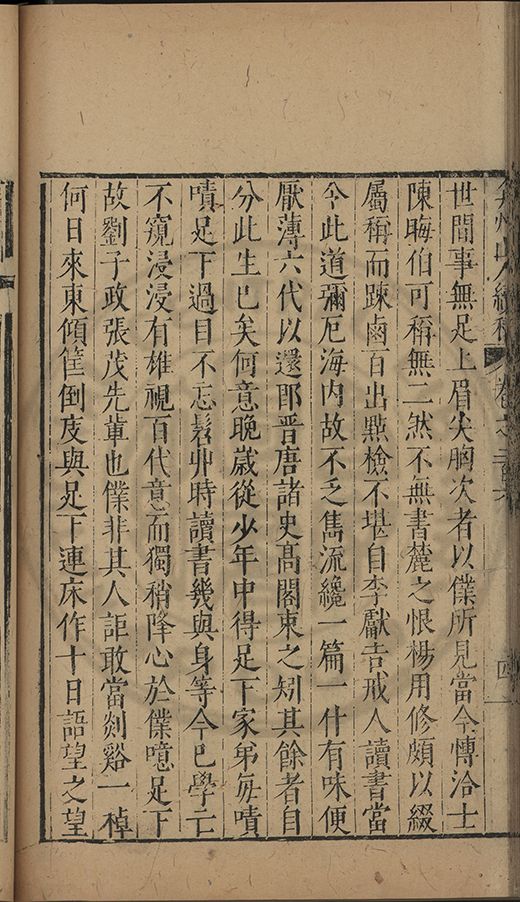 弇州山人續稿 卷之二百六 四
世間事無足上眉尖胸次者以僕所見當今博洽士
陳晦伯可稱無二然不無書麓之恨楊用修頗以綴
屬稱而踈鹵百出點檢不堪自李獻吉戒人讀書當
今此道彌尼海内故不乏雋流纔一篇一什有味便
厭薄六代以還即晋唐諸史高閣束之矧其餘者自
分此生已矣何意晚歲從少年中得足下家弟每嘖
嘖足下過目不忘髫丱時讀書幾與身等今已學亡
不窺浸浸有雄視百代意而獨稍降心於僕噫足下
故劉子政張茂先輩也僕非其人詎敢當剡谿一棹
何日來東傾筐倒庋與足下連床作十日語望之望